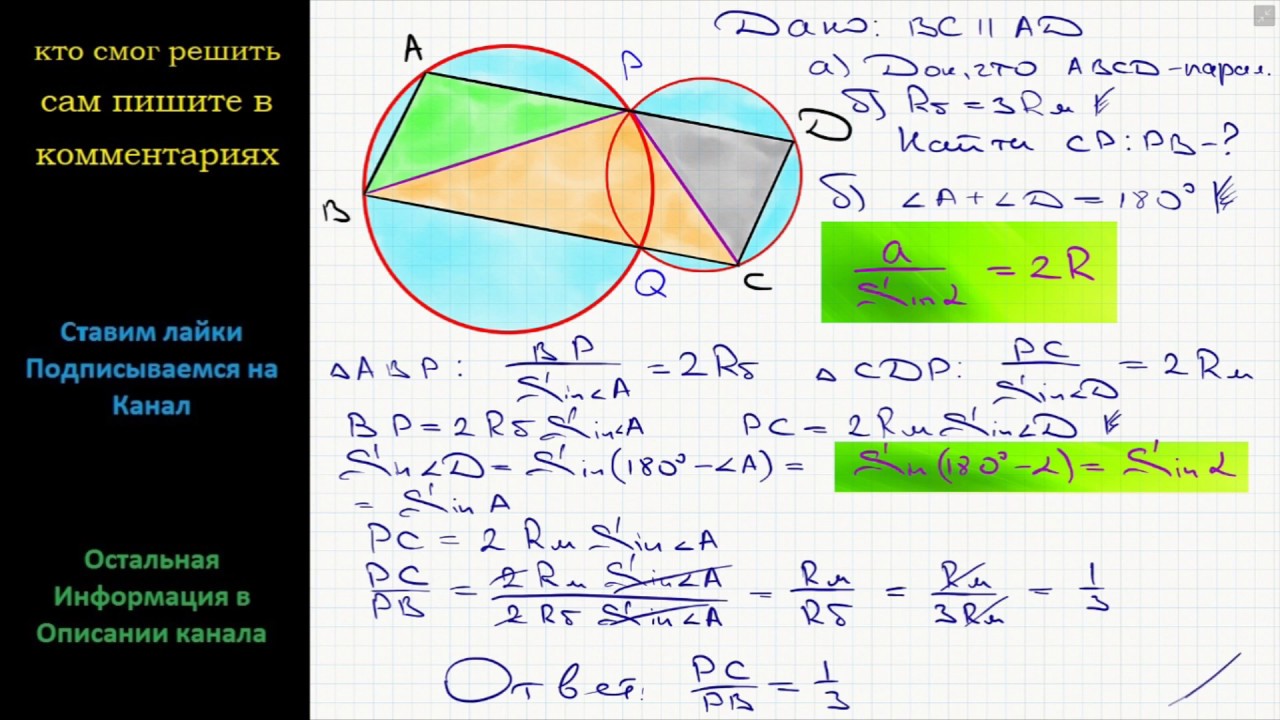 кто смог решить
сам пишите в
комментариях
Ставим лайки
Подписываемся на
Канал
Остальная
Информация в
Описании канала
A
P
D
B
Q
C
Дано: BC || AD
а) Док, что ABCD-парал.
б) Rб = 3Rм
Найти CP:PB-?
б) ∠A+∠D=180°
a/Sinα = 2R
△ABP: BP/Sin∠A = 2Rб △CDP: PC/Sin∠D = 2Rм
BP=2RбSin∠A PC=2RмSin∠D
Sin∠D=Sin(180°-∠A)= Sin(180°-α)=Sinα
= Sin A
PC = 2 Rм Sin∠A
PC/PB = 2 Rм Sin∠A/2 Rб Sin∠A = Rм/Rб = Rм/3Rм = 1/3
Ответ: PC/PB = 1/3